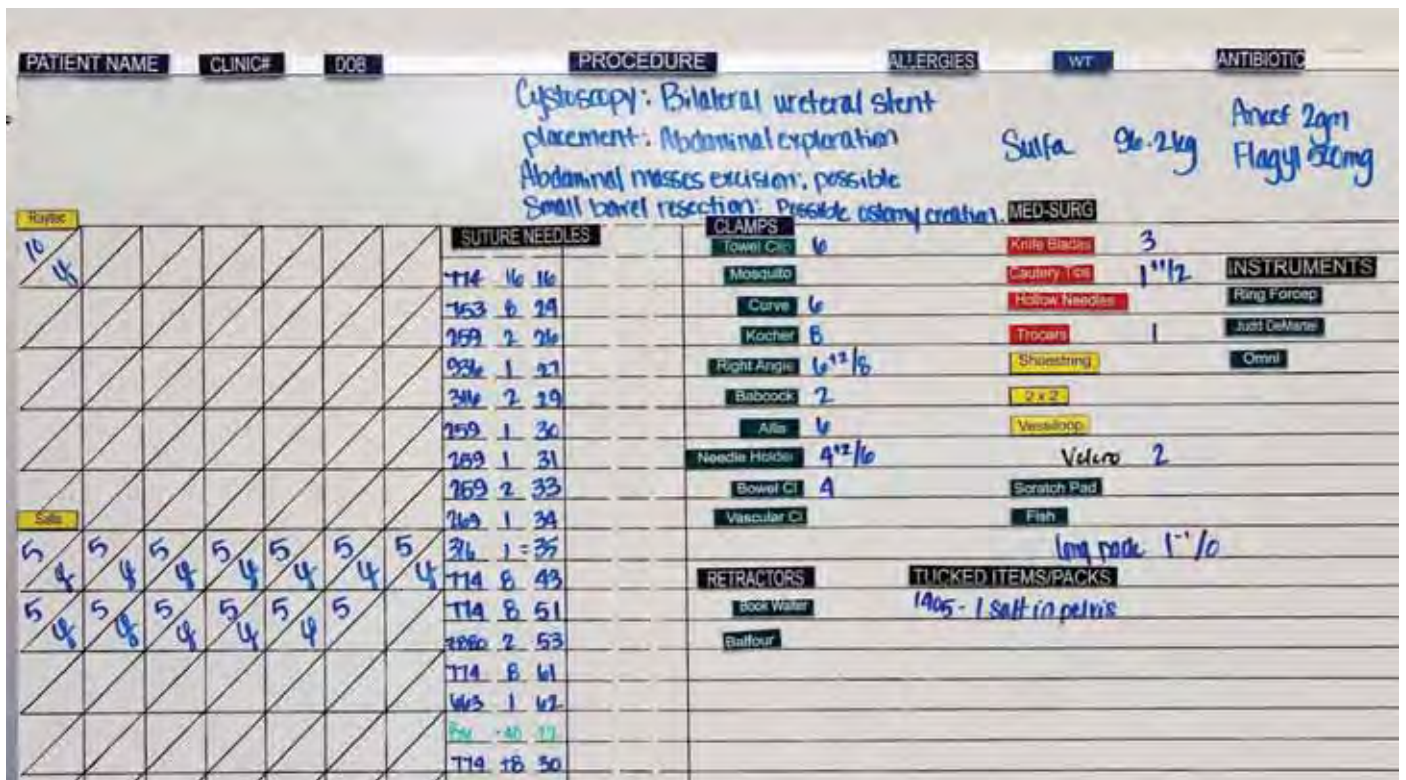 PATIENT NAME CLINIC# DOB PROCEDURE ALLERGIES WT ANTIBIOTIC
Cystoscopy: Bilateral ureteral stent
placement: Abdominal exploration
Abdominal masses excision: possible
Small bowel resection: Possible ostomy creation.
Sulfa 96.2kg
Ancef 2gm
Flagyl 500mg
Raytec
10
SUTURE NEEDLES
774 16 16
8
2 26
1 27
2 29
259 1 30
259 1 31
259 2 33
1 34
316 1 = 35
774 8 43
774 8 51
2 53
774 8 61
1 62
774 +8 30
Salts
5 5 5 5 5 5 5
5 5 5 5 5 5
CLAMPS
Towel Clip 6
Mosquito
Curve 6
Kocher 8
Right Angle 6+2/8
Babcock 2
Allis 6
Needle Holder 4+2/6
Bowel Cl 4
Vascular Cl
RETRACTORS
Book Walter
Balfour
MED-SURG
Knife Blades 3
Cautery Tips 1+1/2
Hollow Needles
Trocars 1
Shoestring
2 x 2
Vessiloop
Velcro 2
Scratch Pad
Fish
long pack 1-1/0
TUCKED ITEMS/PACKS
1905 - 1 Salt in pelvis
INSTRUMENTS
Ring Forcep
Judd DeMartel
Omni